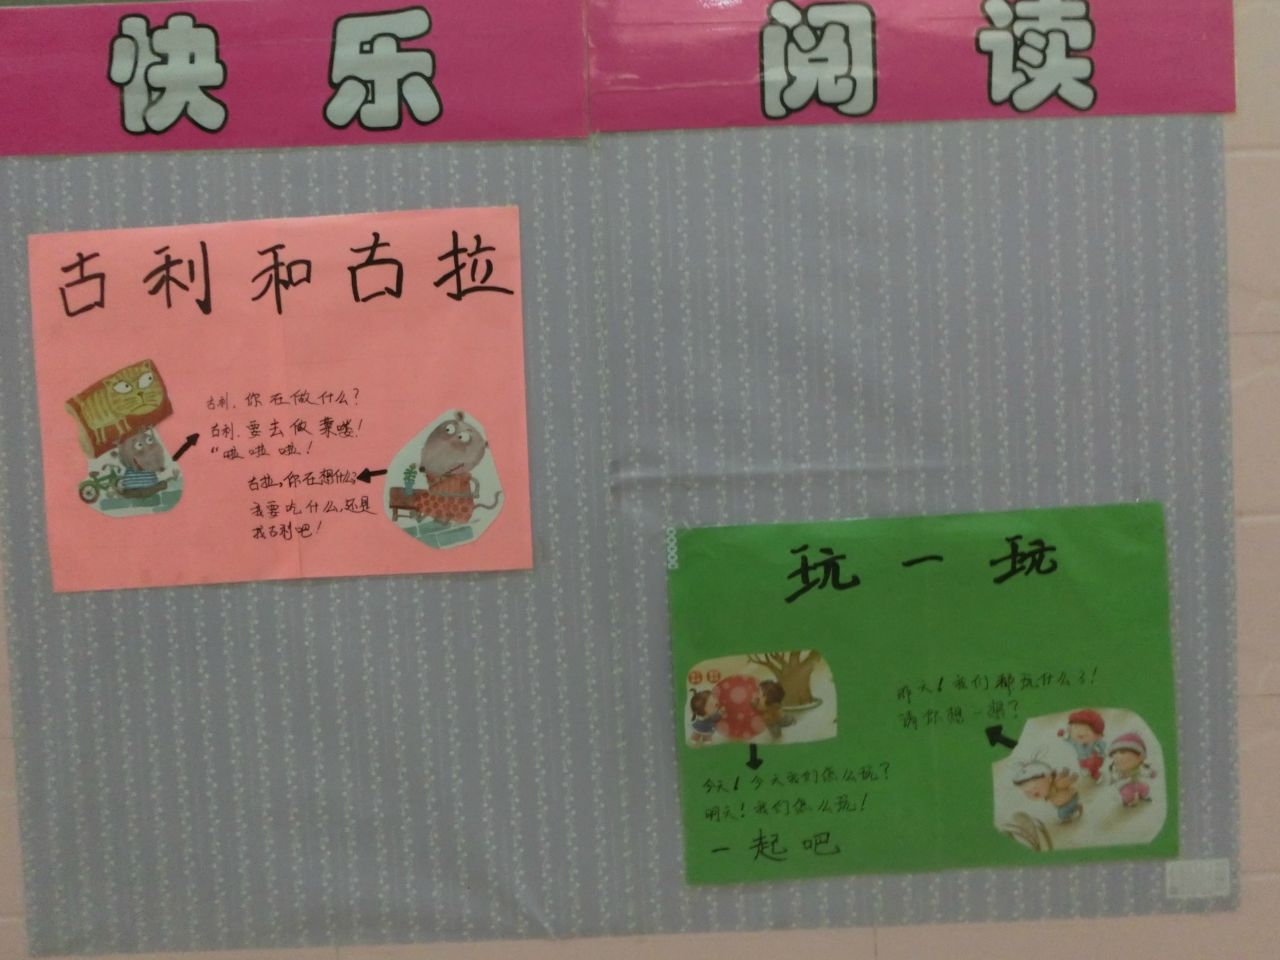 快乐 阅读
古利和古拉
古利,你在做什么?
古利,要去做菜喽!
“啦啦啦!
古拉,你在想什么,
我要吃什么,还是
找古利吧!
玩一玩
昨天!我们都玩什么了!
请你想一想?
今天!今天我们怎么玩?
明天!我们怎么玩!
一起吧